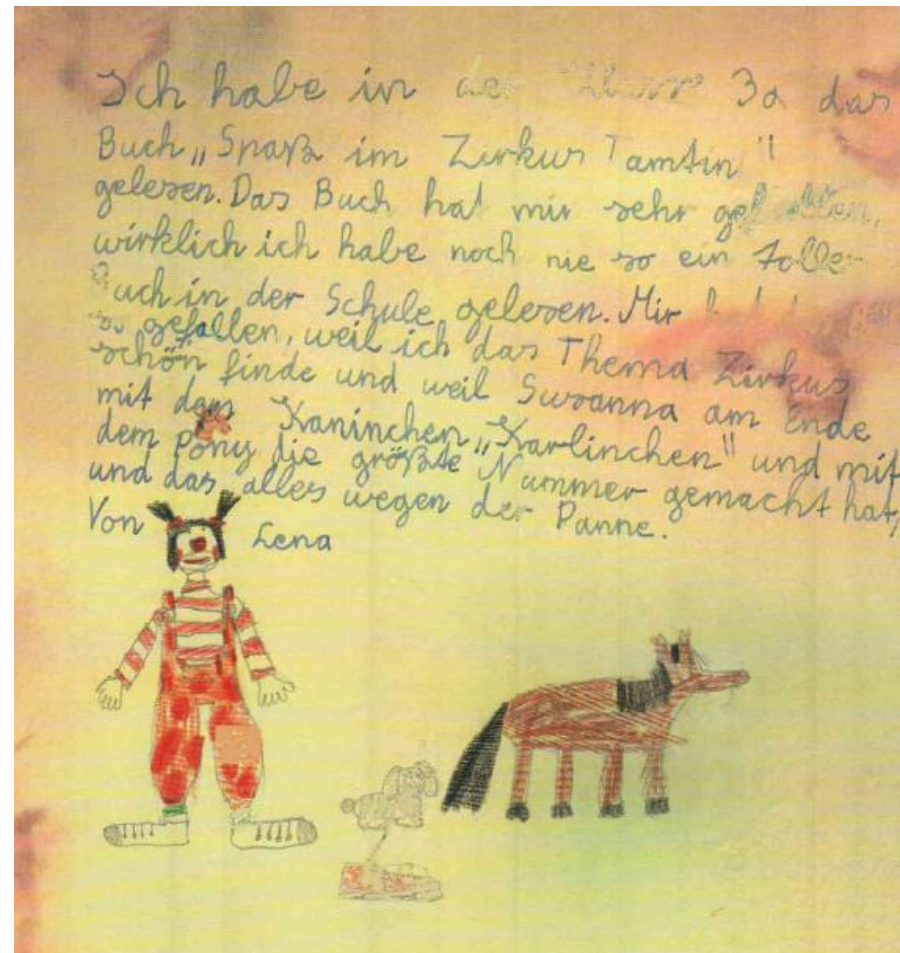 Ich habe in der Klasse 3a das
Buch „Spaß im Zirkus Tamtin"
gelesen. Das Buch hat mir sehr gefallen,
wirklich ich habe noch nie so ein tolles
Buch in der Schule gelesen. Mir hat das
so gefallen, weil ich das Thema Zirkus
schön finde und weil Susanna am Ende
mit dem Kaninchen „Karlinchen" und mit
dem Pony die größte Nummer gemacht hat,
und das alles wegen der Panne.
Von Lena